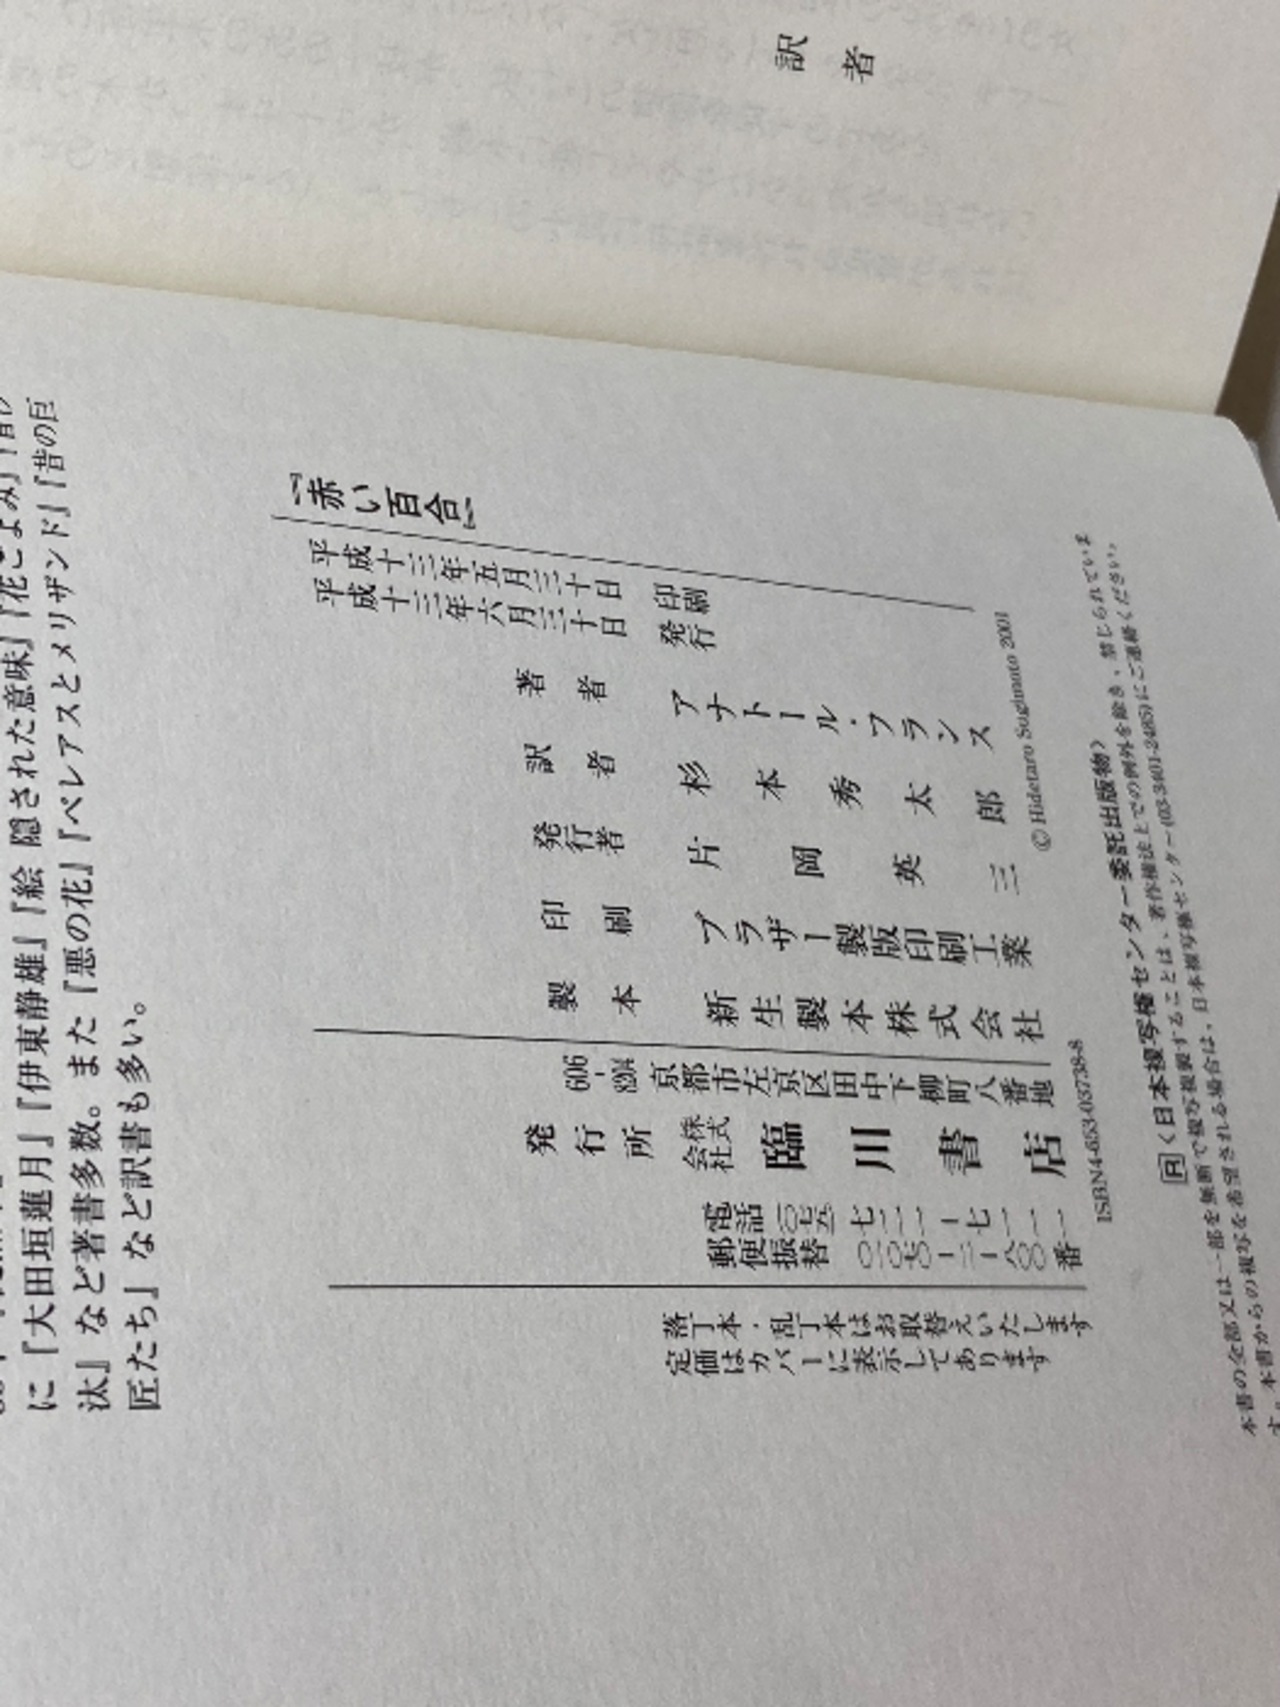 訳者
に『大田垣蓮月』『伊東静雄』『絵 隠された意味』『花ごよみ』
汰』など著書多数。また『悪の花』『ペレアスとメリザンド』『昔の巨
匠たち』など訳書も多い。
『赤い百合』
平成十三年五月三十日 印刷
平成十三年六月三十日 発行
著者 アナトール・フランス
訳者 杉本秀太郎
発行者 片岡英三
印刷 ブラザー製版印刷工業
製本 新生製本株式会社
606-8204 京都市左京区田中下柳町八番地
発行所 株式会社 臨川書店
電話 〇七五 七二一-七一一一
郵便振替 〇一〇七〇-二-八〇〇番
落丁本・乱丁本はお取替えいたします
定価はカバーに表示してあります
© Hidetaro Sugimoto 2001
ISBN4-653-03738-8
R <日本複写権センター委託出版物>
本書の全部又は一部を無断で複写複製することは、著作権法上での例外を除き、禁じられていま
す。本書からの複写を希望される場合は、日本複写権センター(03-3401-2485)にご連絡ください。